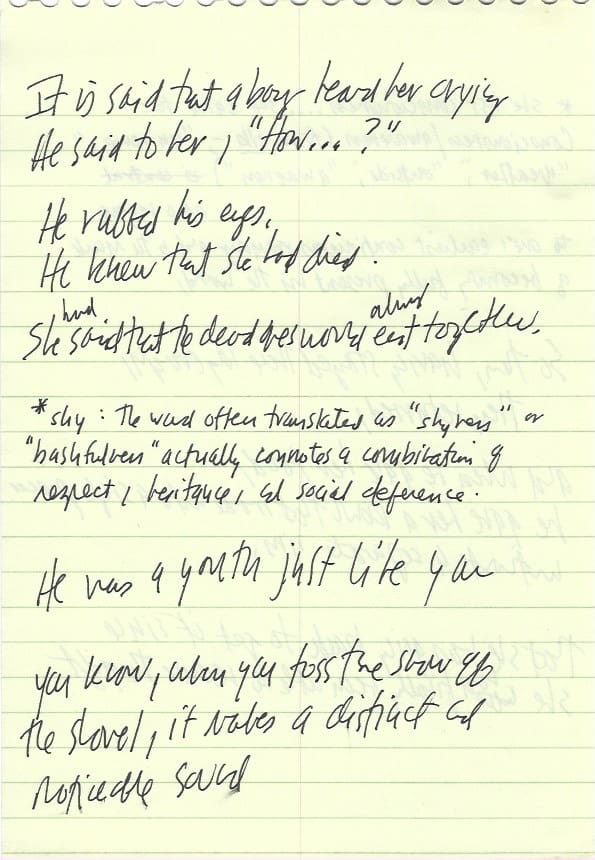 It is said that a boy heard her crying
He said to her, "How...?"
He rubbed his eyes.
He knew that she had died.
had always
She said that the dead ones would eat together.
*shy: The word often translated as "shyness" or
"bashfulness" actually connotes a combination of
respect, hesitance, and social deference.
He was a youth just like you
you know, when you toss the snow off
the shovel, it makes a distinct and
noticeable sound